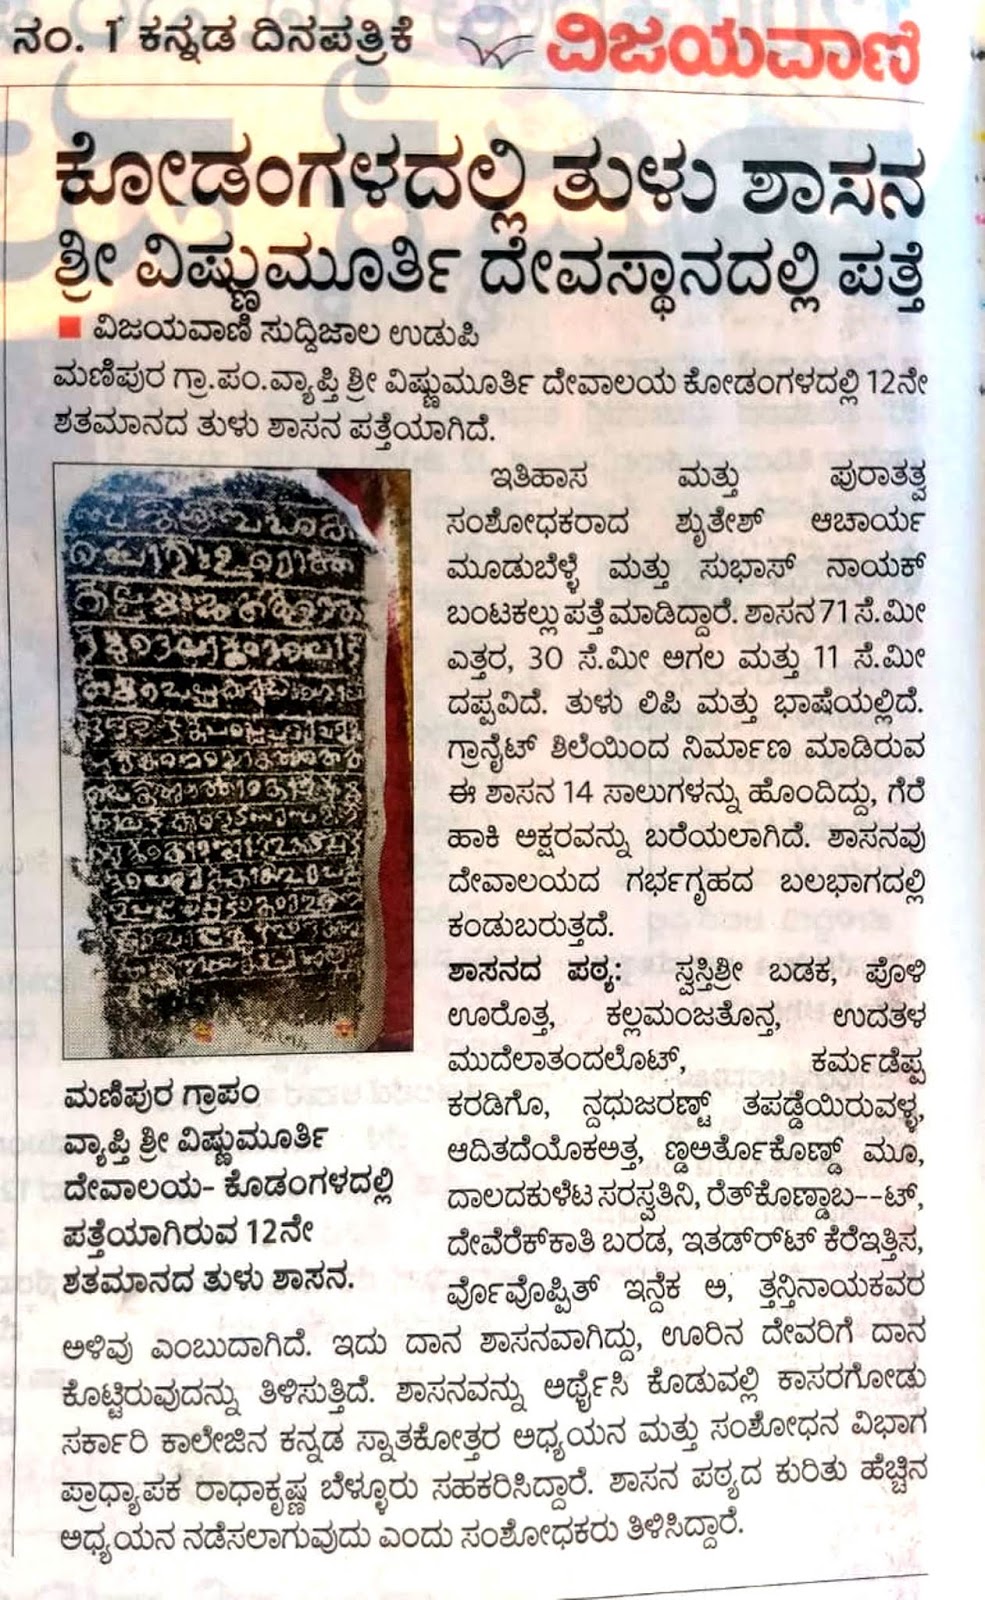 ನಂ. 1 ಕನ್ನಡ ದಿನಪತ್ರಿಕೆ ವಿಜಯವಾಣಿ
ಕೋಡಂಗಳದಲ್ಲಿ ತುಳು ಶಾಸನ
ಶ್ರೀ ವಿಷ್ಣುಮೂರ್ತಿ ದೇವಸ್ಥಾನದಲ್ಲಿ ಪತ್ತೆ
■ ವಿಜಯವಾಣಿ ಸುದ್ದಿಜಾಲ ಉಡುಪಿ
ಮಣಿಪುರ ಗ್ರಾ.ಪಂ.ವ್ಯಾಪ್ತಿ ಶ್ರೀ ವಿಷ್ಣುಮೂರ್ತಿ ದೇವಾಲಯ ಕೋಡಂಗಳದಲ್ಲಿ 12ನೇ
ಶತಮಾನದ ತುಳು ಶಾಸನ ಪತ್ತೆಯಾಗಿದೆ.
ಇತಿಹಾಸ ಮತ್ತು ಪುರಾತತ್ವ
ಸಂಶೋಧಕರಾದ ಶ್ರುತೇಶ್ ಆಚಾರ್ಯ
ಮೂಡುಬೆಳ್ಳೆ ಮತ್ತು ಸುಭಾಸ್ ನಾಯಕ್
ಬಂಟಕಲ್ಲು ಪತ್ತೆ ಮಾಡಿದ್ದಾರೆ. ಶಾಸನ 71 ಸೆ.ಮೀ
ಎತ್ತರ, 30 ಸೆ.ಮೀ ಅಗಲ ಮತ್ತು 11 ಸೆ.ಮೀ
ದಪ್ಪವಿದೆ. ತುಳು ಲಿಪಿ ಮತ್ತು ಭಾಷೆಯಲ್ಲಿದೆ.
ಗ್ರಾನೈಟ್ ಶಿಲೆಯಿಂದ ನಿರ್ಮಾಣ ಮಾಡಿರುವ
ಈ ಶಾಸನ 14 ಸಾಲುಗಳನ್ನು ಹೊಂದಿದ್ದು, ಗೆರೆ
ಹಾಕಿ ಅಕ್ಷರವನ್ನು ಬರೆಯಲಾಗಿದೆ. ಶಾಸನವು
ದೇವಾಲಯದ ಗರ್ಭಗೃಹದ ಬಲಭಾಗದಲ್ಲಿ
ಕಂಡುಬರುತ್ತದೆ.
ಶಾಸನದ ಪಠ್ಯ: ಸ್ವಸ್ತಿಶ್ರೀ ಬಡಕ, ಪೊಳಿ
ಊರೊತ್ತ, ಕಲ್ಲಮಂಜತೊನ್ತ, ಉದತಳ
ಮುದೆಲಾತಂದಲೊಟ್, ಕರ್ಮಡೆಪ್ಪ
ಕರಡಿಗೊ, ನ್ದಧುಜರಣ್ಟ್ ತಪಡ್ಡೆಯಿರುವಳ್ಳ,
ಆದಿತದೆಯೊಕಅತ್ತ, ಣ್ಡಅರ್ತೊಕೊಣ್ಡ್ ಮೂ,
ದಾಲದಕುಳೆಟ ಸರಸ್ವತಿನಿ, ರೆತ್‌ಕೊಣ್ಡಾಬ--ಟ್,
ದೇವೆರೆಕ್‌ಕಾತಿ ಬರಡ, ಇತಡ್‌ರ್ಟ್ ಕೆರೆಇತ್ತಿಸ,
ರ್ವೊವೊಪ್ಪಿತ್ ಇನ್ದೆಕ ಅ, ತ್ತನ್ತಿನಾಯಕವರ
ಅಳಿವು ಎಂಬುದಾಗಿದೆ. ಇದು ದಾನ ಶಾಸನವಾಗಿದ್ದು, ಊರಿನ ದೇವರಿಗೆ ದಾನ
ಕೊಟ್ಟಿರುವುದನ್ನು ತಿಳಿಸುತ್ತಿದೆ. ಶಾಸನವನ್ನು ಅರ್ಥೈಸಿ ಕೊಡುವಲ್ಲಿ ಕಾಸರಗೋಡು
ಸರ್ಕಾರಿ ಕಾಲೇಜಿನ ಕನ್ನಡ ಸ್ನಾತಕೋತ್ತರ ಅಧ್ಯಯನ ಮತ್ತು ಸಂಶೋಧನ ವಿಭಾಗ
ಪ್ರಾಧ್ಯಾಪಕ ರಾಧಾಕೃಷ್ಣ ಬೆಳ್ಳೂರು ಸಹಕರಿಸಿದ್ದಾರೆ. ಶಾಸನ ಪಠ್ಯದ ಕುರಿತು ಹೆಚ್ಚಿನ
ಅಧ್ಯಯನ ನಡೆಸಲಾಗುವುದು ಎಂದು ಸಂಶೋಧಕರು ತಿಳಿಸಿದ್ದಾರೆ.
ಮಣಿಪುರ ಗ್ರಾಪಂ
ವ್ಯಾಪ್ತಿ ಶ್ರೀ ವಿಷ್ಣುಮೂರ್ತಿ
ದೇವಾಲಯ- ಕೊಡಂಗಳದಲ್ಲಿ
ಪತ್ತೆಯಾಗಿರುವ 12ನೇ
ಶತಮಾನದ ತುಳು ಶಾಸನ.